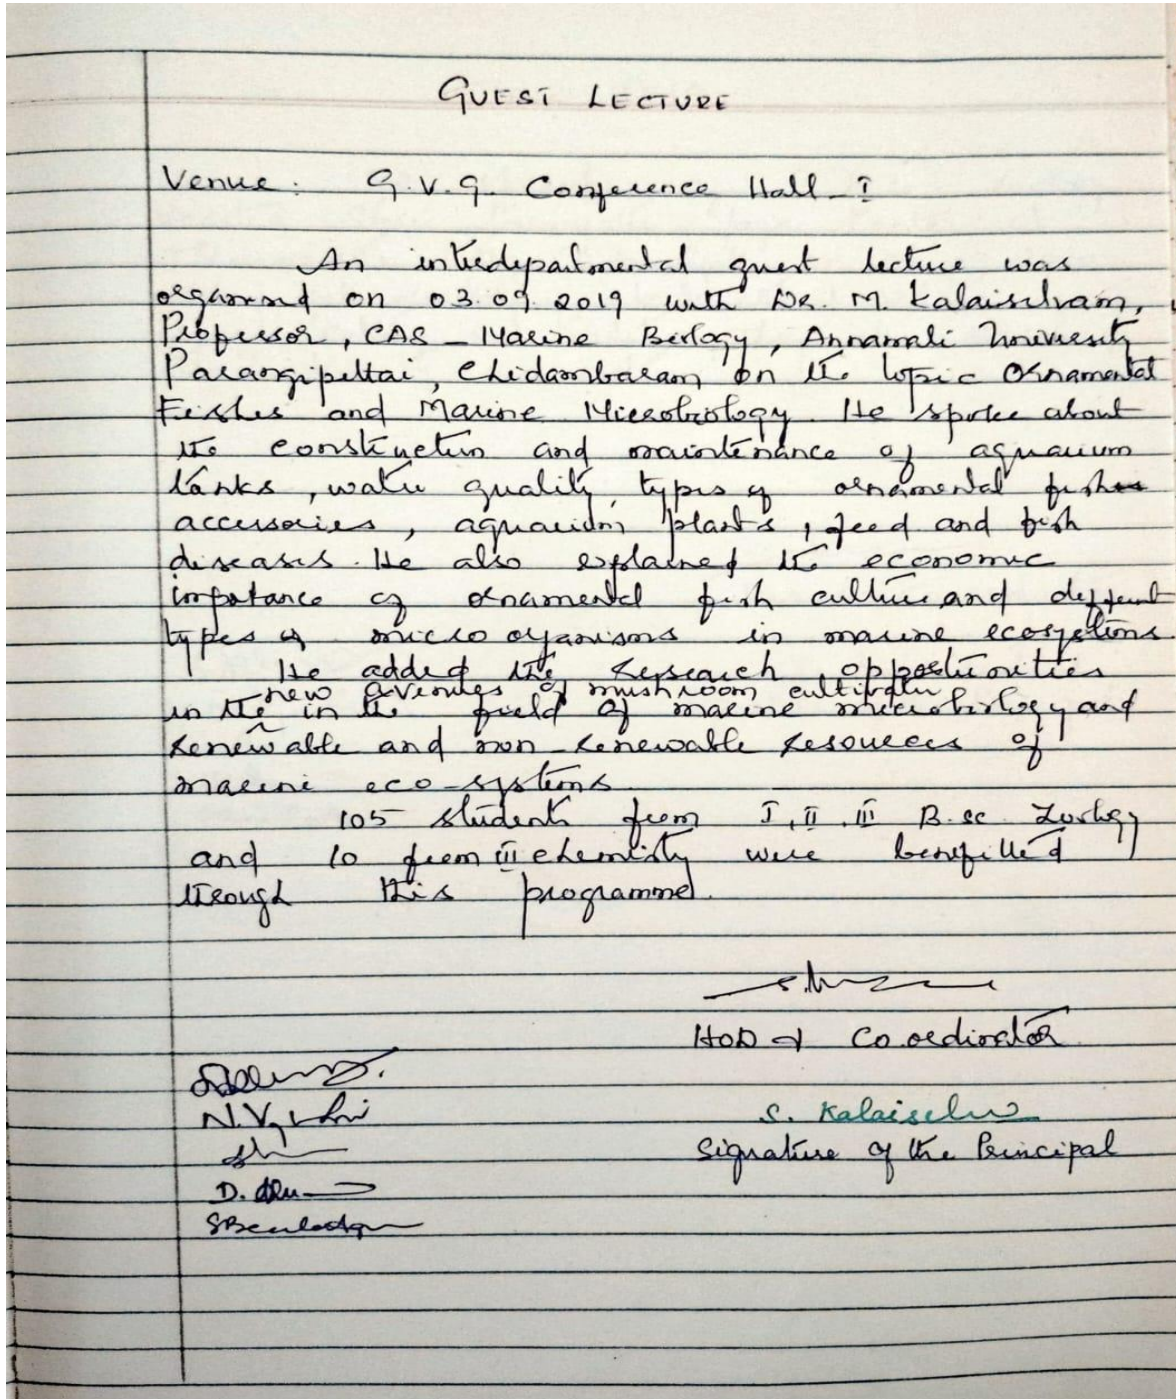 GUEST LECTURE
Venue: G.V.G. Conference Hall - I
An interdepartmental guest lecture was
organised on 03.09.2019 with Dr. M. Kalaiselvam,
Professor, CAS - Marine Biology, Annamali University
Parangipettai, Chidambaram on the topic Ornamental
Fishes and Marine Microbiology. He spoke about
the construction and maintenance of aquarium
tanks, water quality, types of ornamental fishes
accessories, aquarium plants, feed and fish
diseases. He also explained the economic
importance of ornamental fish culture and different
types of micro organisms in marine ecosystems
He added the research opportunities
new avenues of mushroom cultivation
in the in the field of marine microbiology and
renewable and non renewable resources of
marine eco-systems
105 students from I, II, III B.sc Zoology
and 10 from III chemistry were benefitted
through this programme.
HOD & Co.ordinator
S. Kalaiselvi
Signature of the Principal